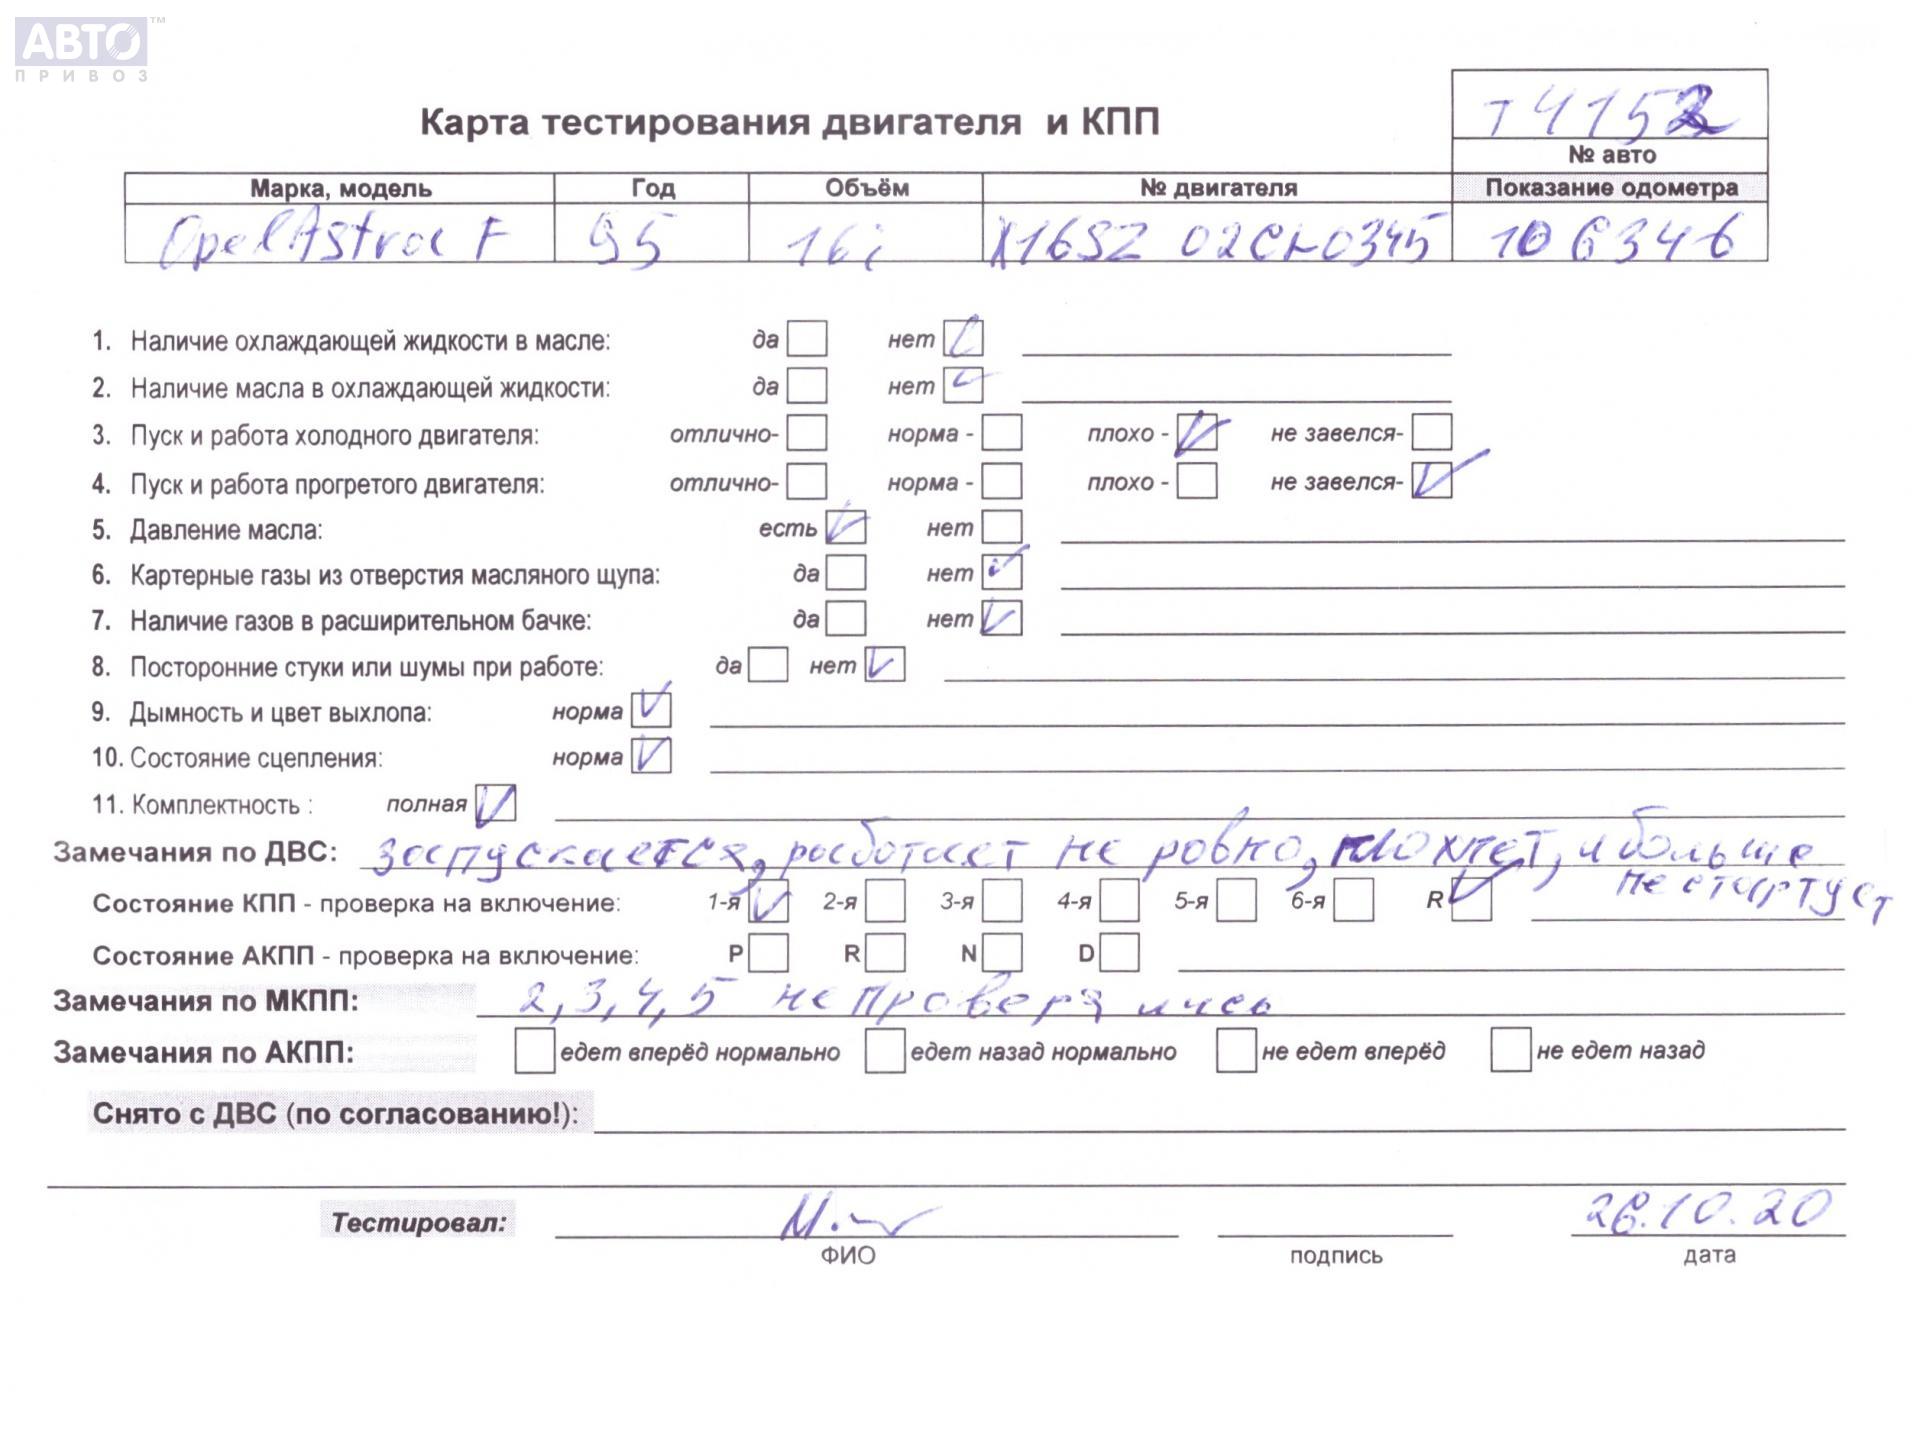 АВТО™
ПРИВОЗ
Т4152
Карта тестирования двигателя и КПП
№ авто
Марка, модель Год Объём № двигателя Показание одометра
Opel Astra F 95 16i X16SZ 02CL0345 106346
1. Наличие охлаждающей жидкости в масле: да нет
2. Наличие масла в охлаждающей жидкости: да нет
3. Пуск и работа холодного двигателя: отлично- норма - плохо - не завелся-
4. Пуск и работа прогретого двигателя: отлично- норма - плохо - не завелся-
5. Давление масла: есть нет
6. Картерные газы из отверстия масляного щупа: да нет
7. Наличие газов в расширительном бачке: да нет
8. Посторонние стуки или шумы при работе: да нет
9. Дымность и цвет выхлопа: норма
10. Состояние сцепления: норма
11. Комплектность : полная
Замечания по ДВС: запускается, работает не ровно, глохнет, и больше
не стартует
Состояние КПП - проверка на включение: 1-я 2-я 3-я 4-я 5-я 6-я R
Состояние АКПП - проверка на включение: P R N D
Замечания по МКПП: 2,3,4,5 не проверялись
Замечания по АКПП: едет вперёд нормально едет назад нормально не едет вперёд не едет назад
Снято с ДВС (по согласованию!):
Тестировал: 26.10.20
ФИО подпись дата